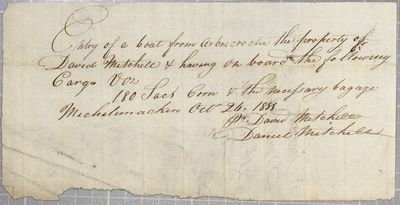 Entry of a boat from Arbrecroche the property of
David Mitchell & having on board the following
Cargo Viz
180 Sack Corn & the necessary bagage
Michilimackin Octr 24.
Pr. David Mitchell
Daniel Mitchell